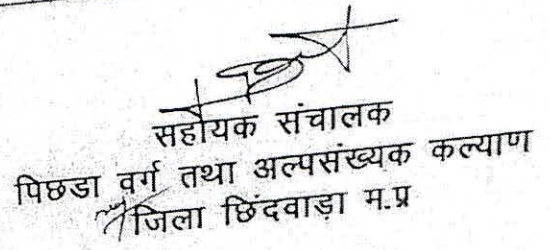 सहायक संचालक
पिछडा वर्ग तथा अल्पसंख्यक कल्याण
जिला छिंदवाड़ा म.प्र